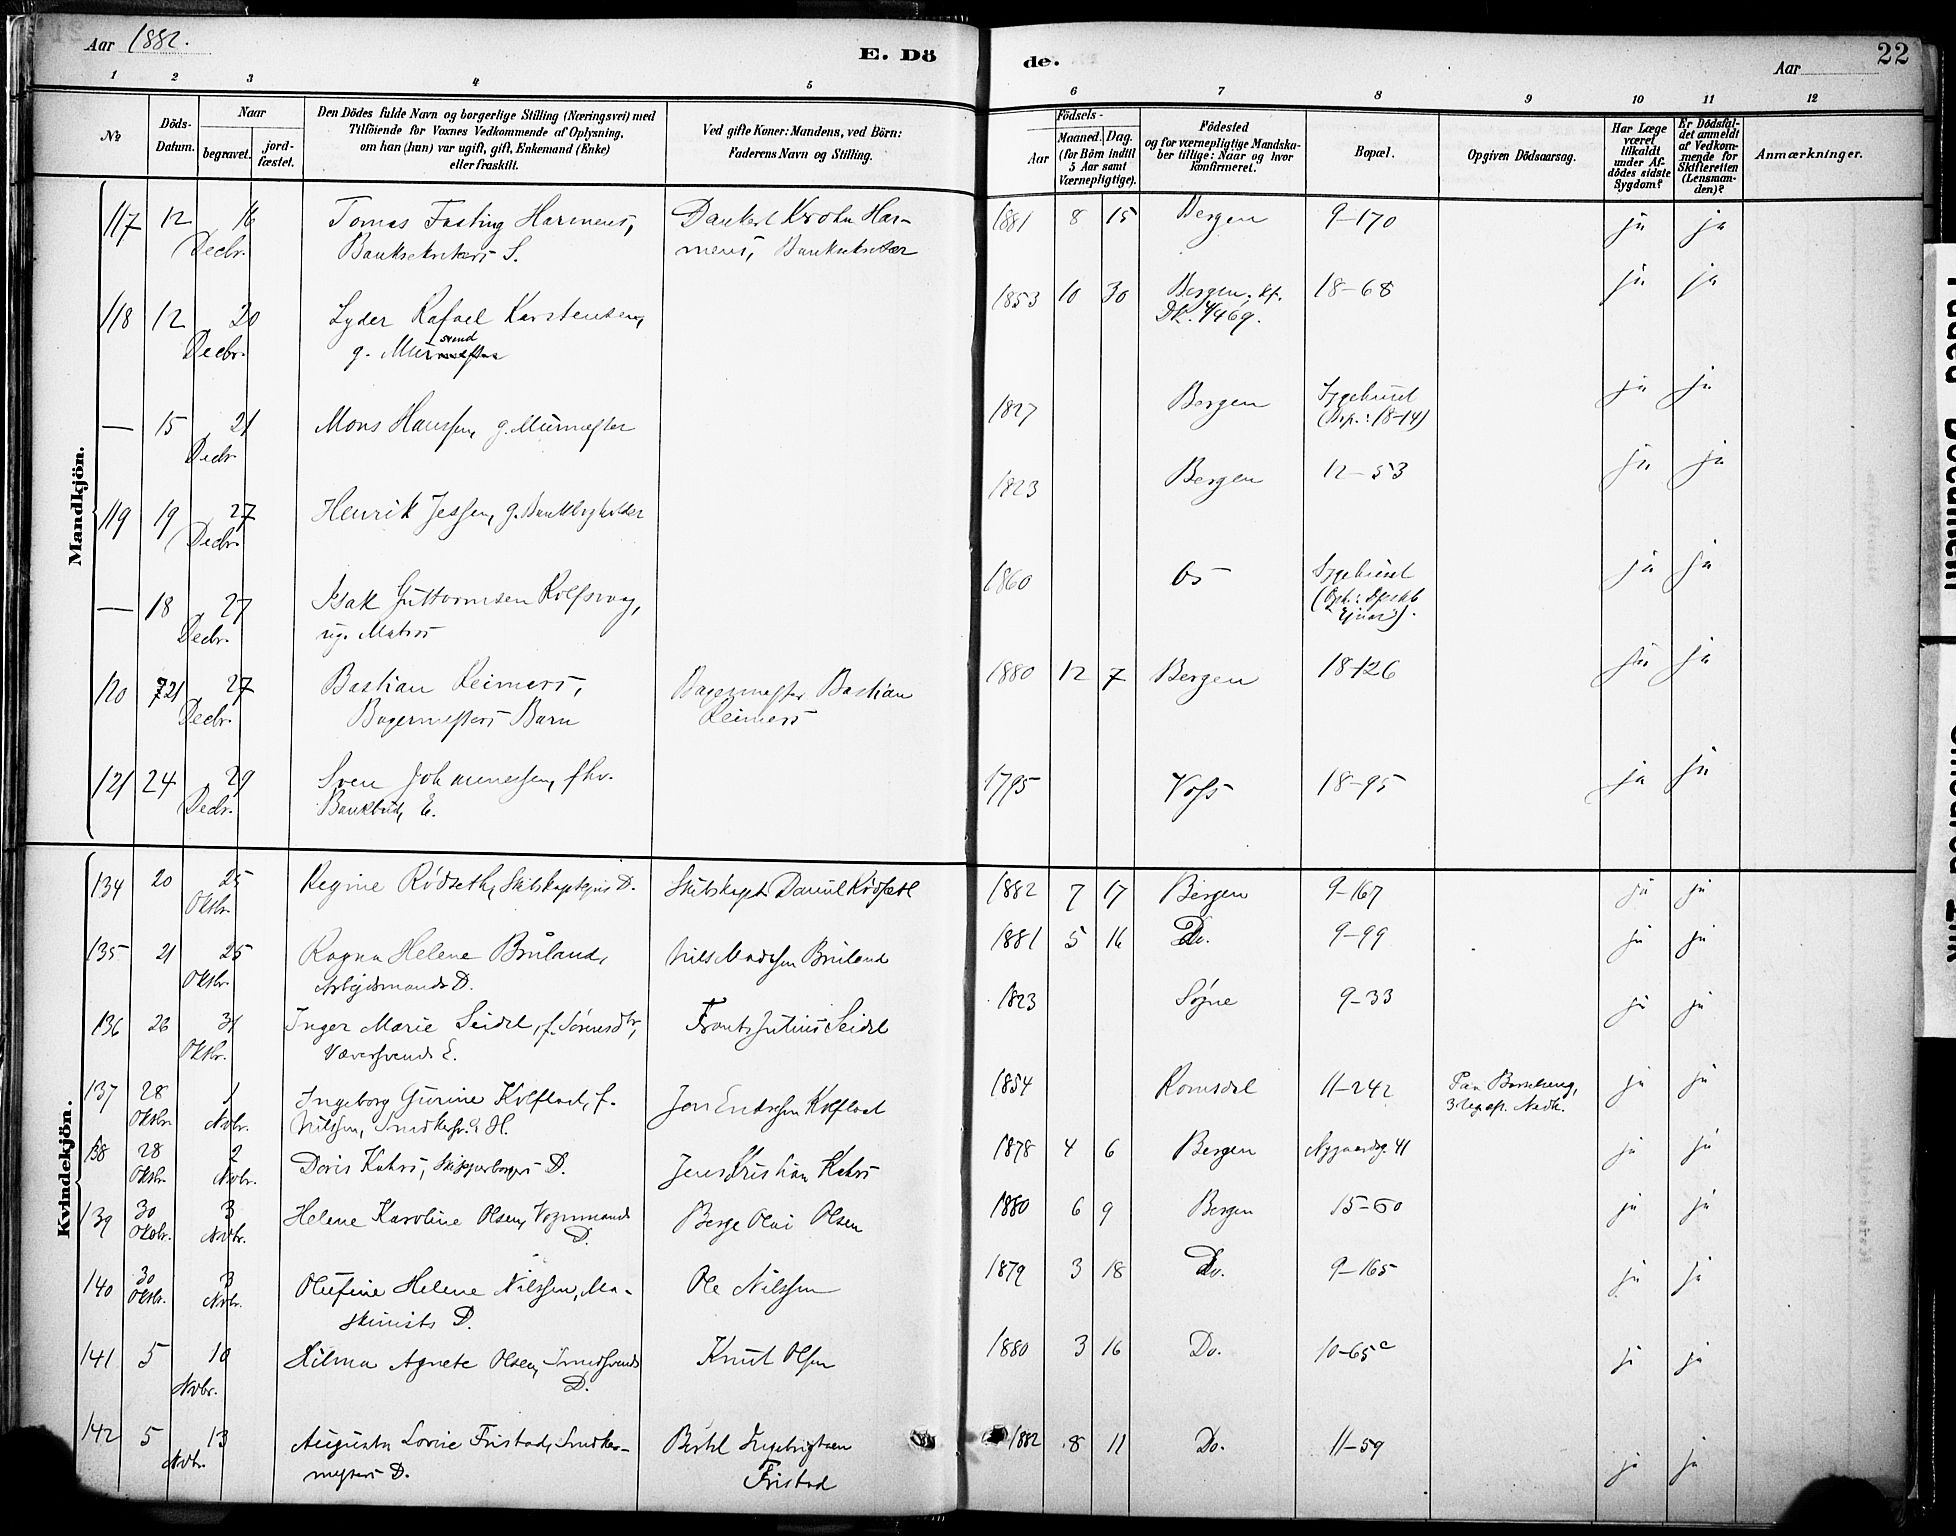 Aar 1882.
E. Dö
de.
Aar
22
1 2 3 4 5 6 7 8 9 10 11 12
No
Döds-
Datum.
Naar
begravet.
jord-
fæstet.
Den Dödes fulde Navn og borgerlige Stilling (Næringsvei) med
Tilföiende for Voxnes Vedkommende af Oplysning,
om han (hun) var ugift, gift, Enkemand (Enke)
eller fraskilt.
Ved gifte Koner: Mandens, ved Börn:
Faderens Navn og Stilling.
Födsels-
Aar
Maaned.
Dag.
(for Börn indtil
5 Aar samt
Værnepligtige).
Födested
og for værnepligtige Mandska-
ber tillige: Naar og hvor
konfirmeret.
Bopæl.
Opgiven Dödsaarsag.
Har Læge
været
tilkaldt
under Af-
dödes sidste
Sygdom?
Er Dödsfal-
det anmeldt
af Vedkom-
mende for
Skifteretten
(Lensman-
den)?
Anmærkninger.
Mandkjön.
117 12 16 Tomas Fasting Harmens, Dankert Krohn Har- 1881 8 15 Bergen 9-170 ja ja
Decbr. Banksekretærs S. mens, Banksekretær
118 12 20 Lyder Rafael Karstensen, 1853 10 30 Bergen. 18-68 ja ja
Decbr. g. Mursvend
— 15 21 Mons Hanssen, g. Murmester 1827 Bergen Sygehuset ja ja
Decbr. (Bop.: 18-14)
119 19 27 Henrik Jessen, g. Bankbogholder 1823 Bergen 12-53 ja ja
Decbr.
— 18 27 Isak Guttormsen Rolfsvaag, 1860 Os Sygehuset ja ja
Decbr. ug. Matros
120 21 27 Bastian Reimers, Bagermester Bastian 1880 12 7 Bergen 18-126 ja ja
Decbr. Bagermesters Barn Reimers
121 24 29 Sven Johannessen, fhv. 1795 Voss 18-95 ja ja
Decbr. Bankbud, E.
Kvindekjön.
134 20 25 Regine Rödseth, Skibskapteins D. Skibskapt. Daniel Rödseth 1882 7 17 Bergen 9-167 ja ja
Oktbr.
135 21 25 Ragna Helene Bruland, Nils Madssen Bruland 1881 5 16 Do. 9-99 ja ja
Oktbr. Arbejdsmands D.
136 26 31 Inger Marie Seidel, f. Sørensdtr, Frants Julius Seidel 1823 Søgne 9-33 ja ja
Oktbr. Væversvends E.
137 28 1 Ingeborg Gurine Kolflaat, f. Jon Endresen Kolflaat 1854 Romsdal 11-242 ja ja
Oktbr. Novbr. Nilssen, H.
138 28 2 Doris Kahrs, Skipperborgers D. Jens Kristian Kahrs 1878 4 6 Bergen Nygaardsg. 41 ja ja
Oktbr. Novbr.
139 30 3 Helene Karoline Olsen, Vognmands Berge Olai Olsen 1880 6 9 Bergen 15-60 ja ja
Oktbr. Novbr. D.
140 30 3 Olufine Helene Nilssen, Ma- Ole Nilssen 1879 3 18 Do. 9-165 ja ja
Oktbr. Novbr. skinists D.
141 5 10 Hilma Agnete Olsen, Smedsvends Knut Olsen 1880 3 16 Do. 10-65c ja ja
Novbr. D.
142 5 13 Augusta Lovise Fristad, Snedker- Bertel Ingebrigtsen 1882 8 11 Do. 11-59 ja ja
Novbr. mesters D. Fristad